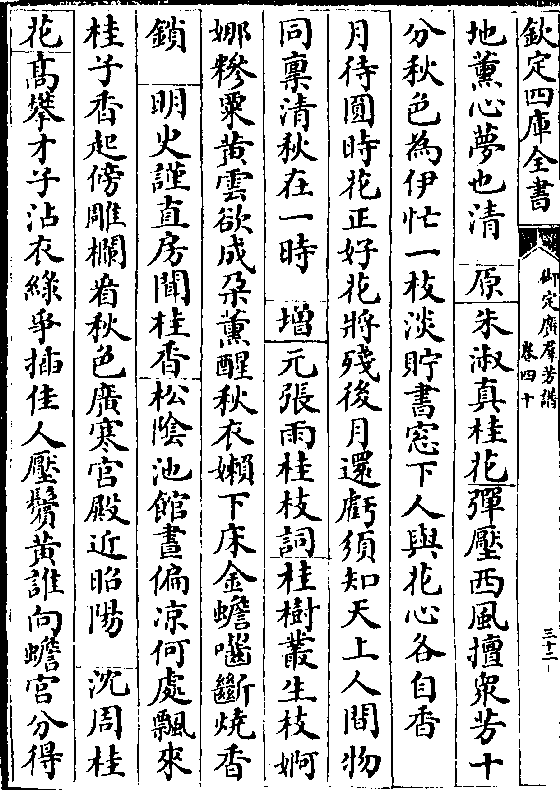 欽定四庫全書
御定廣羣芳譜
卷四十
三十二
地薫心夢也清　原　朱淑真桂花彈壓西風擅衆芳十
分秋色為伊忙一枝淡貯書窓下人與花心各自香
月待圓時花正好花將殘後月還虧須知天上人間物
同稟清秋在一時　增　元張雨桂枝詞桂樹叢生枝婀
娜糝粟黄雲欲成朶薫醒秋衣嬾下床金蟾囓斷燒香
鎖　明火謹直房聞桂香松陰池館晝偏凉何處飄來
桂子香起傍雕欄看秋色廣寒宫殿近昭陽　沈周桂
花高攀才子沾衣綠爭插佳人壓鬢黄誰向蟾宫分得